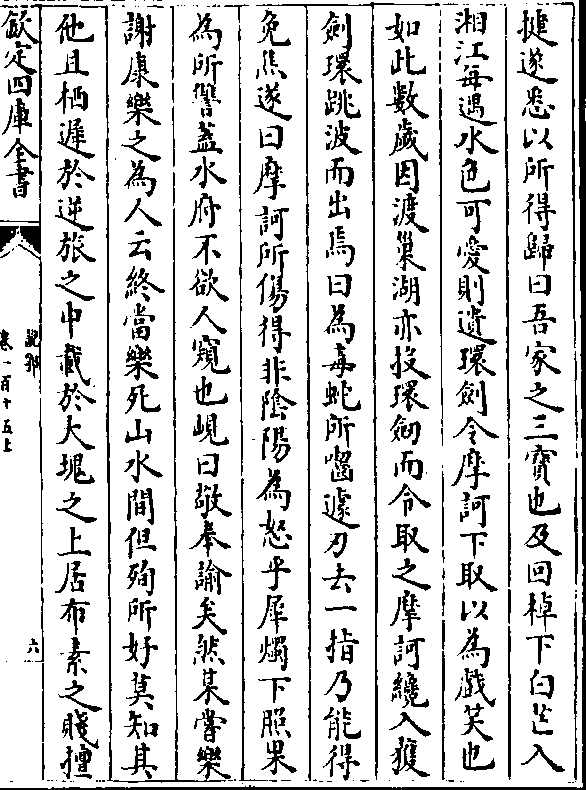 捷遂悉以所得歸曰吾家之三寳也及回棹下白芷入
湘江每遇水色可愛則遺環劍令摩訶下取以為戲笑也
如此數歲因渡巢湖亦投環劒而令取之摩訶纔入獲
劍環跳波而出焉曰為毒蛇所嚙遽刃去一指乃能得
免焦遂曰摩訶所傷得非陰陽為怒乎犀燭下照果
為所讐蓋水府不欲人窺也峴曰敬奉諭矣然某嘗樂
謝康樂之為人云終當樂死山水間但殉所好莫知其
他且栖遲於逆旅之中載於大塊之上居布素之賤擅
欽定四庫全書
說郛
卷一百十五上
六